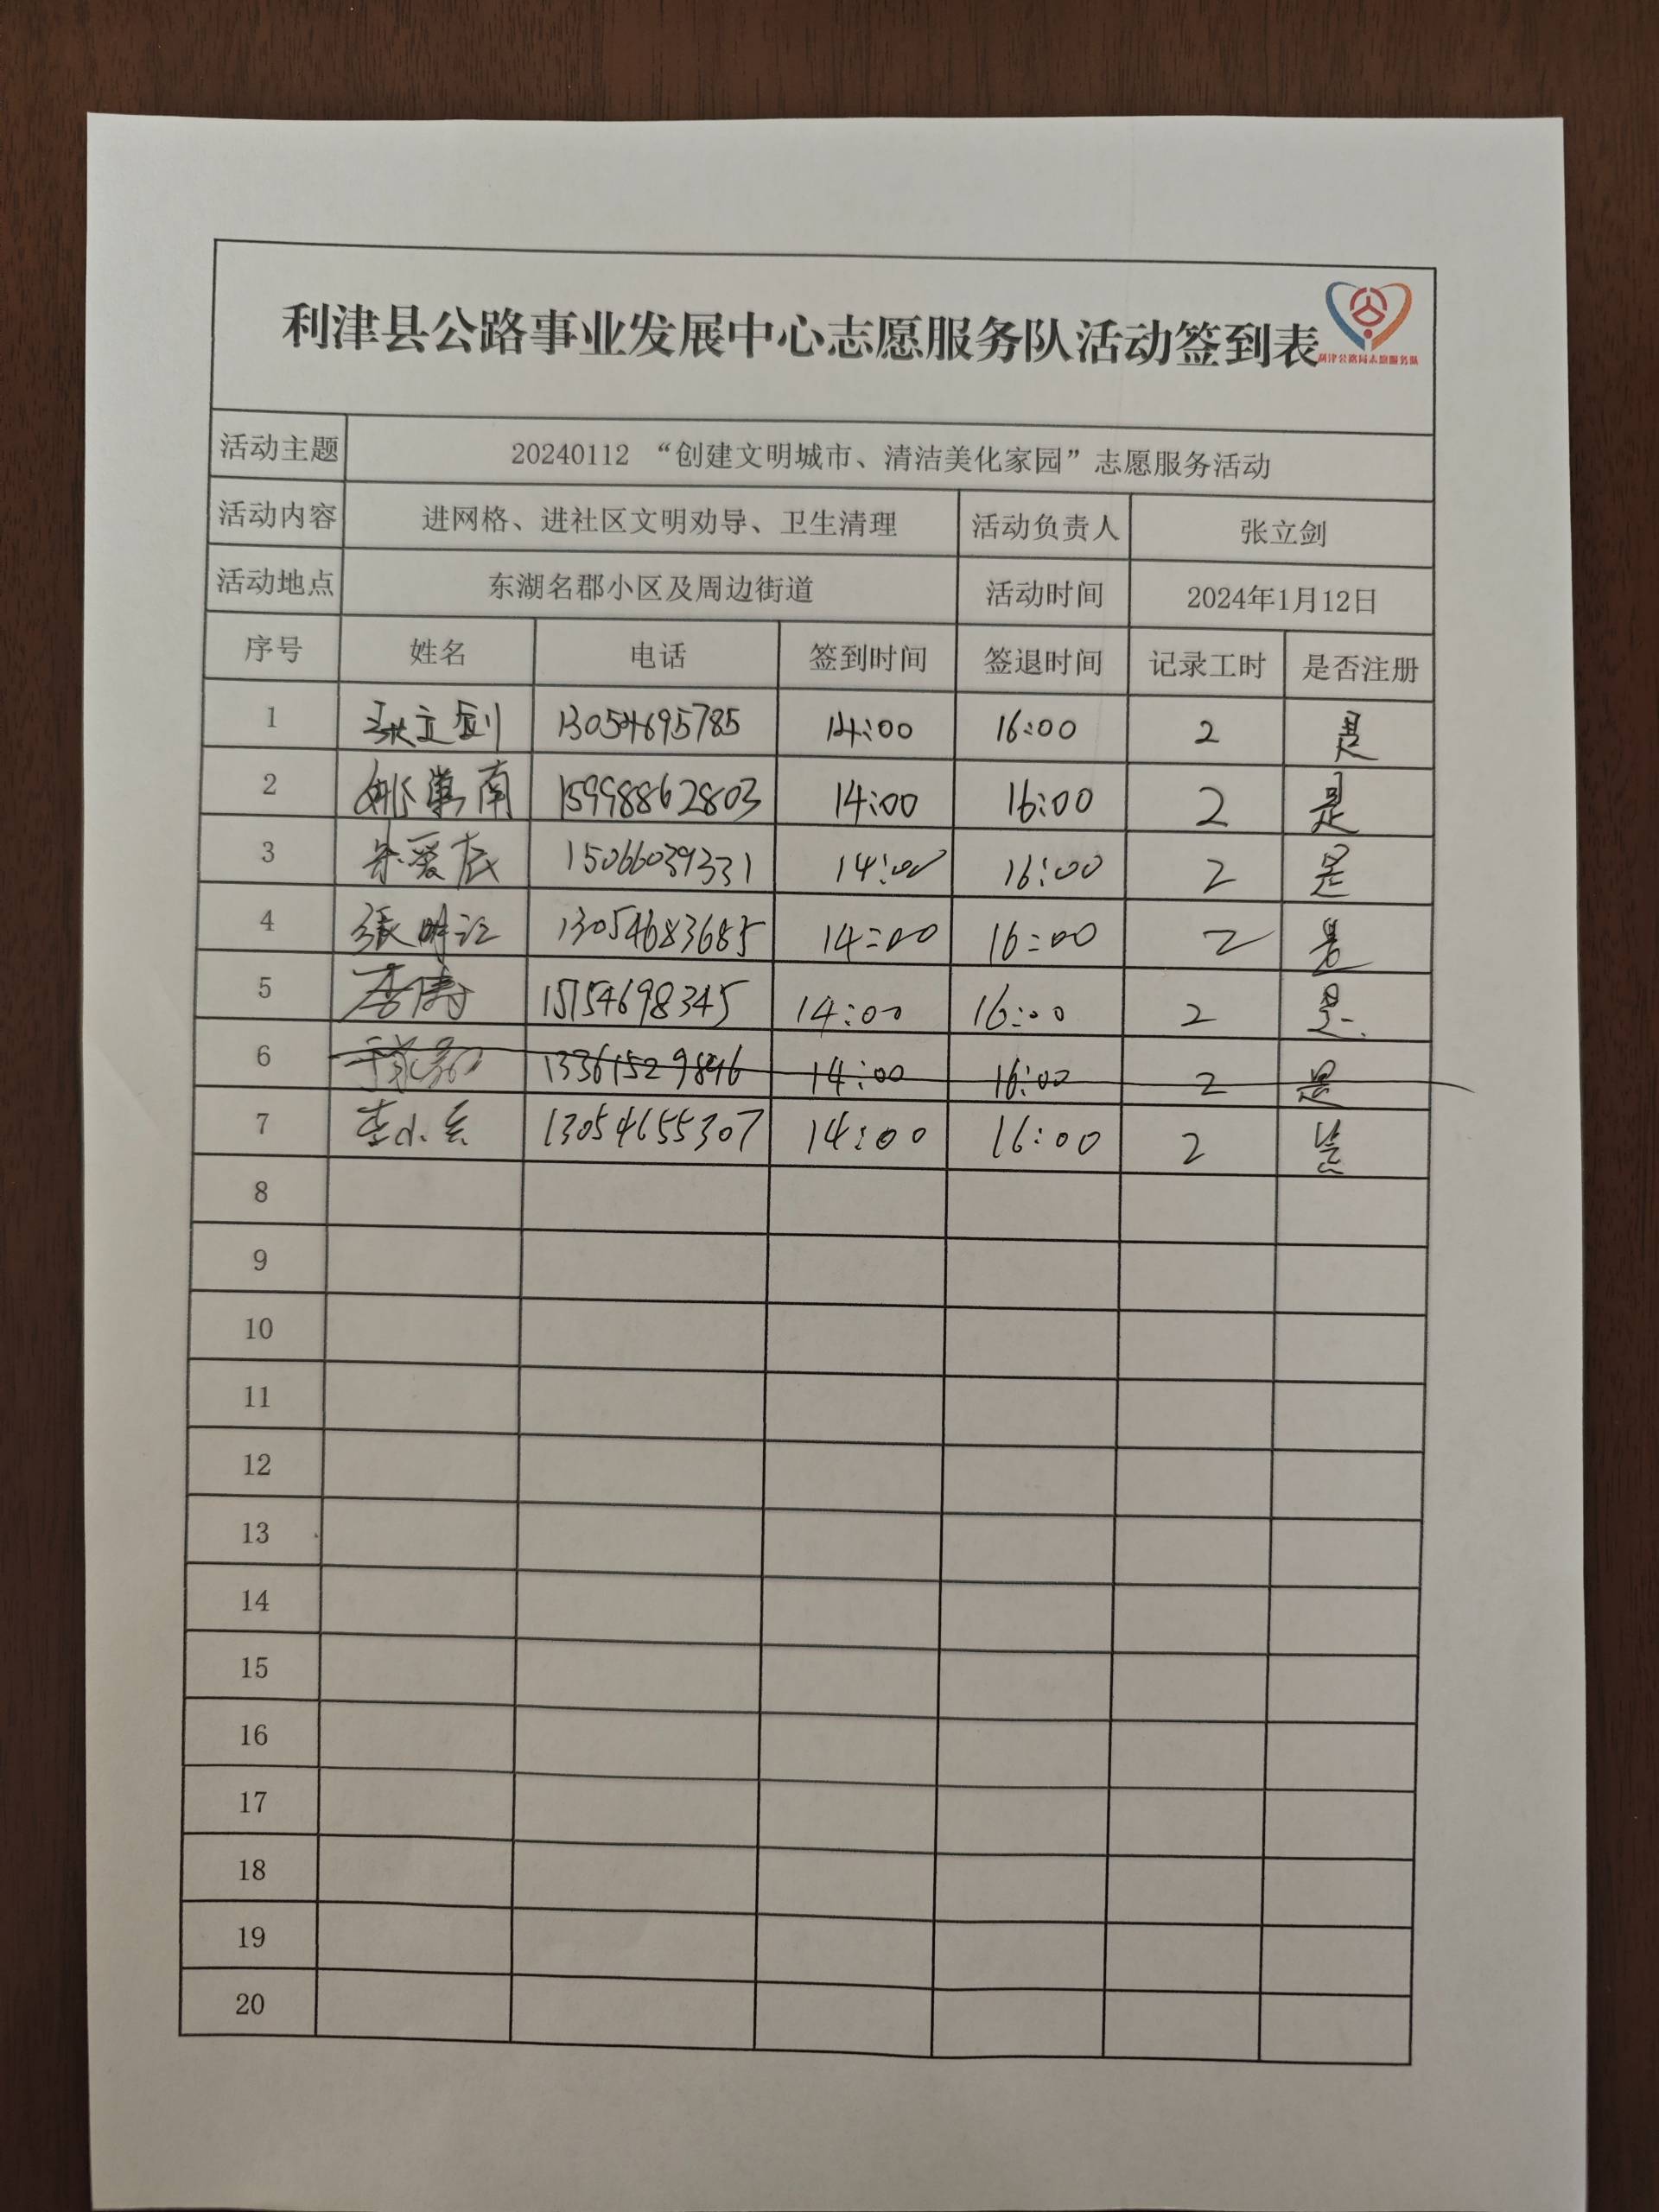 利津县公路事业发展中心志愿服务队活动签到表
利津公路局志愿服务队
活动主题 20240112 “创建文明城市、清洁美化家园”志愿服务活动
活动内容 进网格、进社区文明劝导、卫生清理 活动负责人 张立剑
活动地点 东湖名郡小区及周边街道 活动时间 2024年1月12日
序号 姓名 电话 签到时间 签退时间 记录工时 是否注册
1 张立剑 13054695785 14:00 16:00 2 是
2 姚 南 15998862803 14:00 16:00 2 是
3 爱 15066039331 14:00 16:00 2 是
4 张明江 13054683685 14:00 16:00 2 是
5 李涛 15154698345 14:00 16:00 2 是
6 13361529896 14:00 16:00 2 是
7 李小 13054655307 14:00 16:00 2 是
8
9
10
11
12
13
14
15
16
17
18
19
20